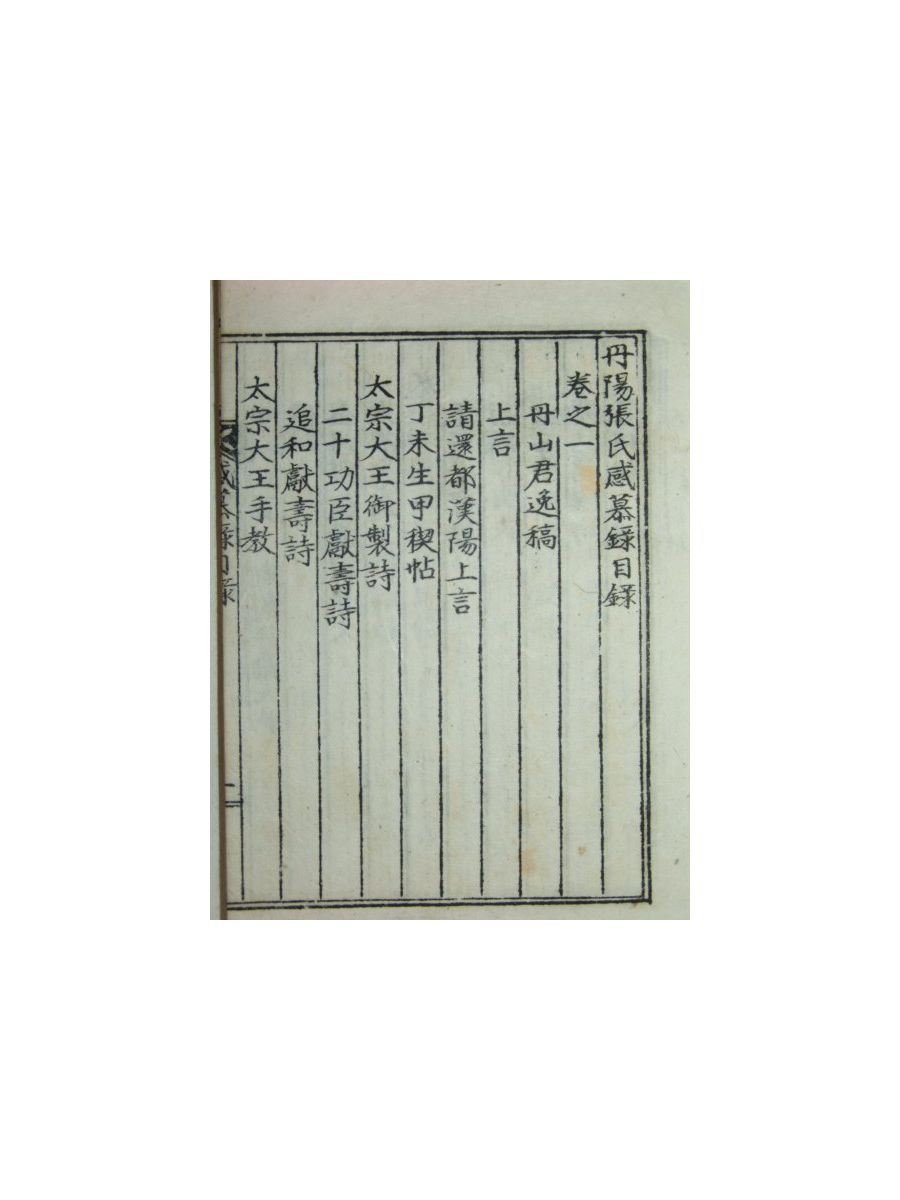 丹陽張氏感慕錄目錄
卷之一
丹山君逸稿
上言
請還都漢陽上言
丁未生甲稧帖
太宗大王御製詩
二十功臣獻壽詩
追和獻壽詩
太宗大王手教
感慕錄目錄